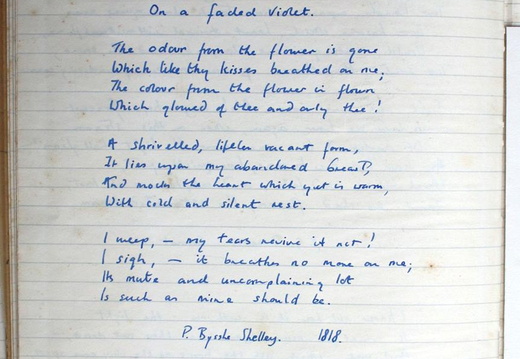 On a faded Violet.
The odour from the flower is gone
Which like thy kisses breathed on me;
The colour from the flower is flown
Which glowed of thee and only thee!
A shrivelled, lifeless vacant form,
It lies upon my abandoned breast,
And mocks the heart which yet is warm,
With cold and silent rest.
I weep, – my tears revive it not!
I sigh, – it breathes no more on me;
Its mute and uncomplaining lot
Is such as mine should be.
P. Bysshe Shelley. 1818.